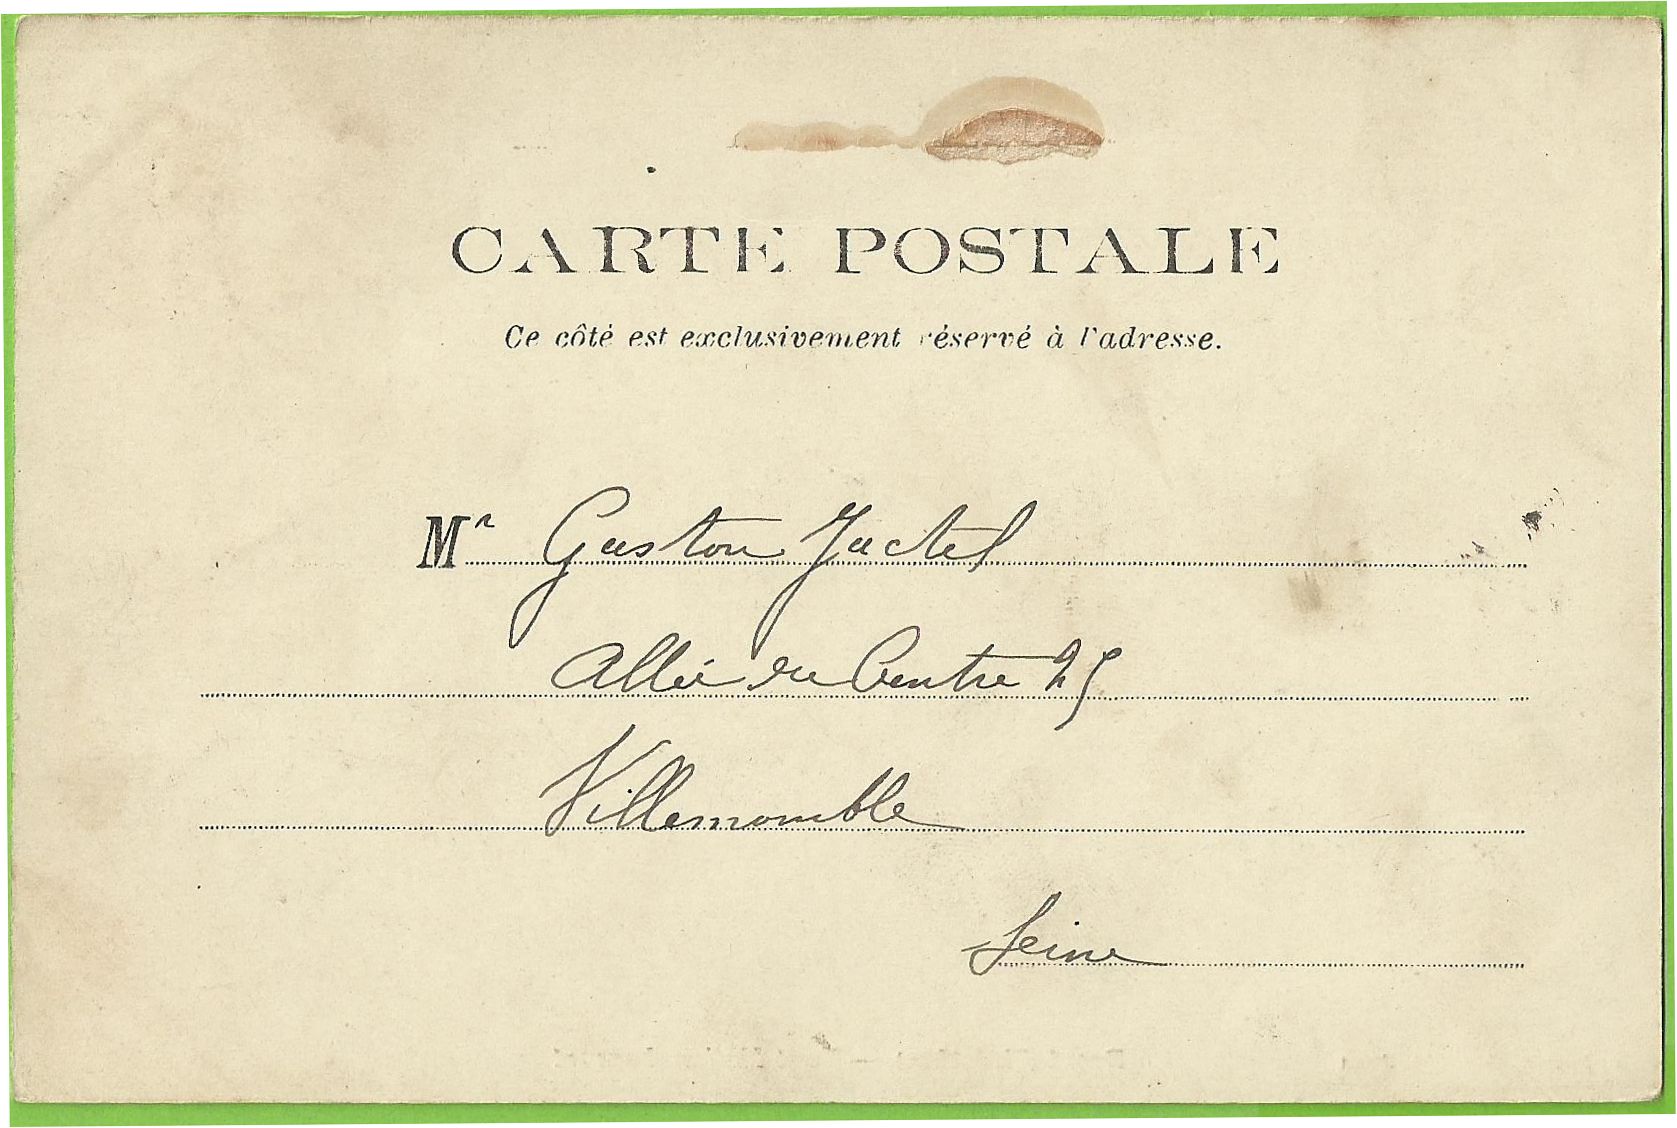 CARTE POSTALE
Ce côté est exclusivement réservé à l'adresse.
Mr Gaston Jactel
Allée du Centre 25
Villemomble
Seine